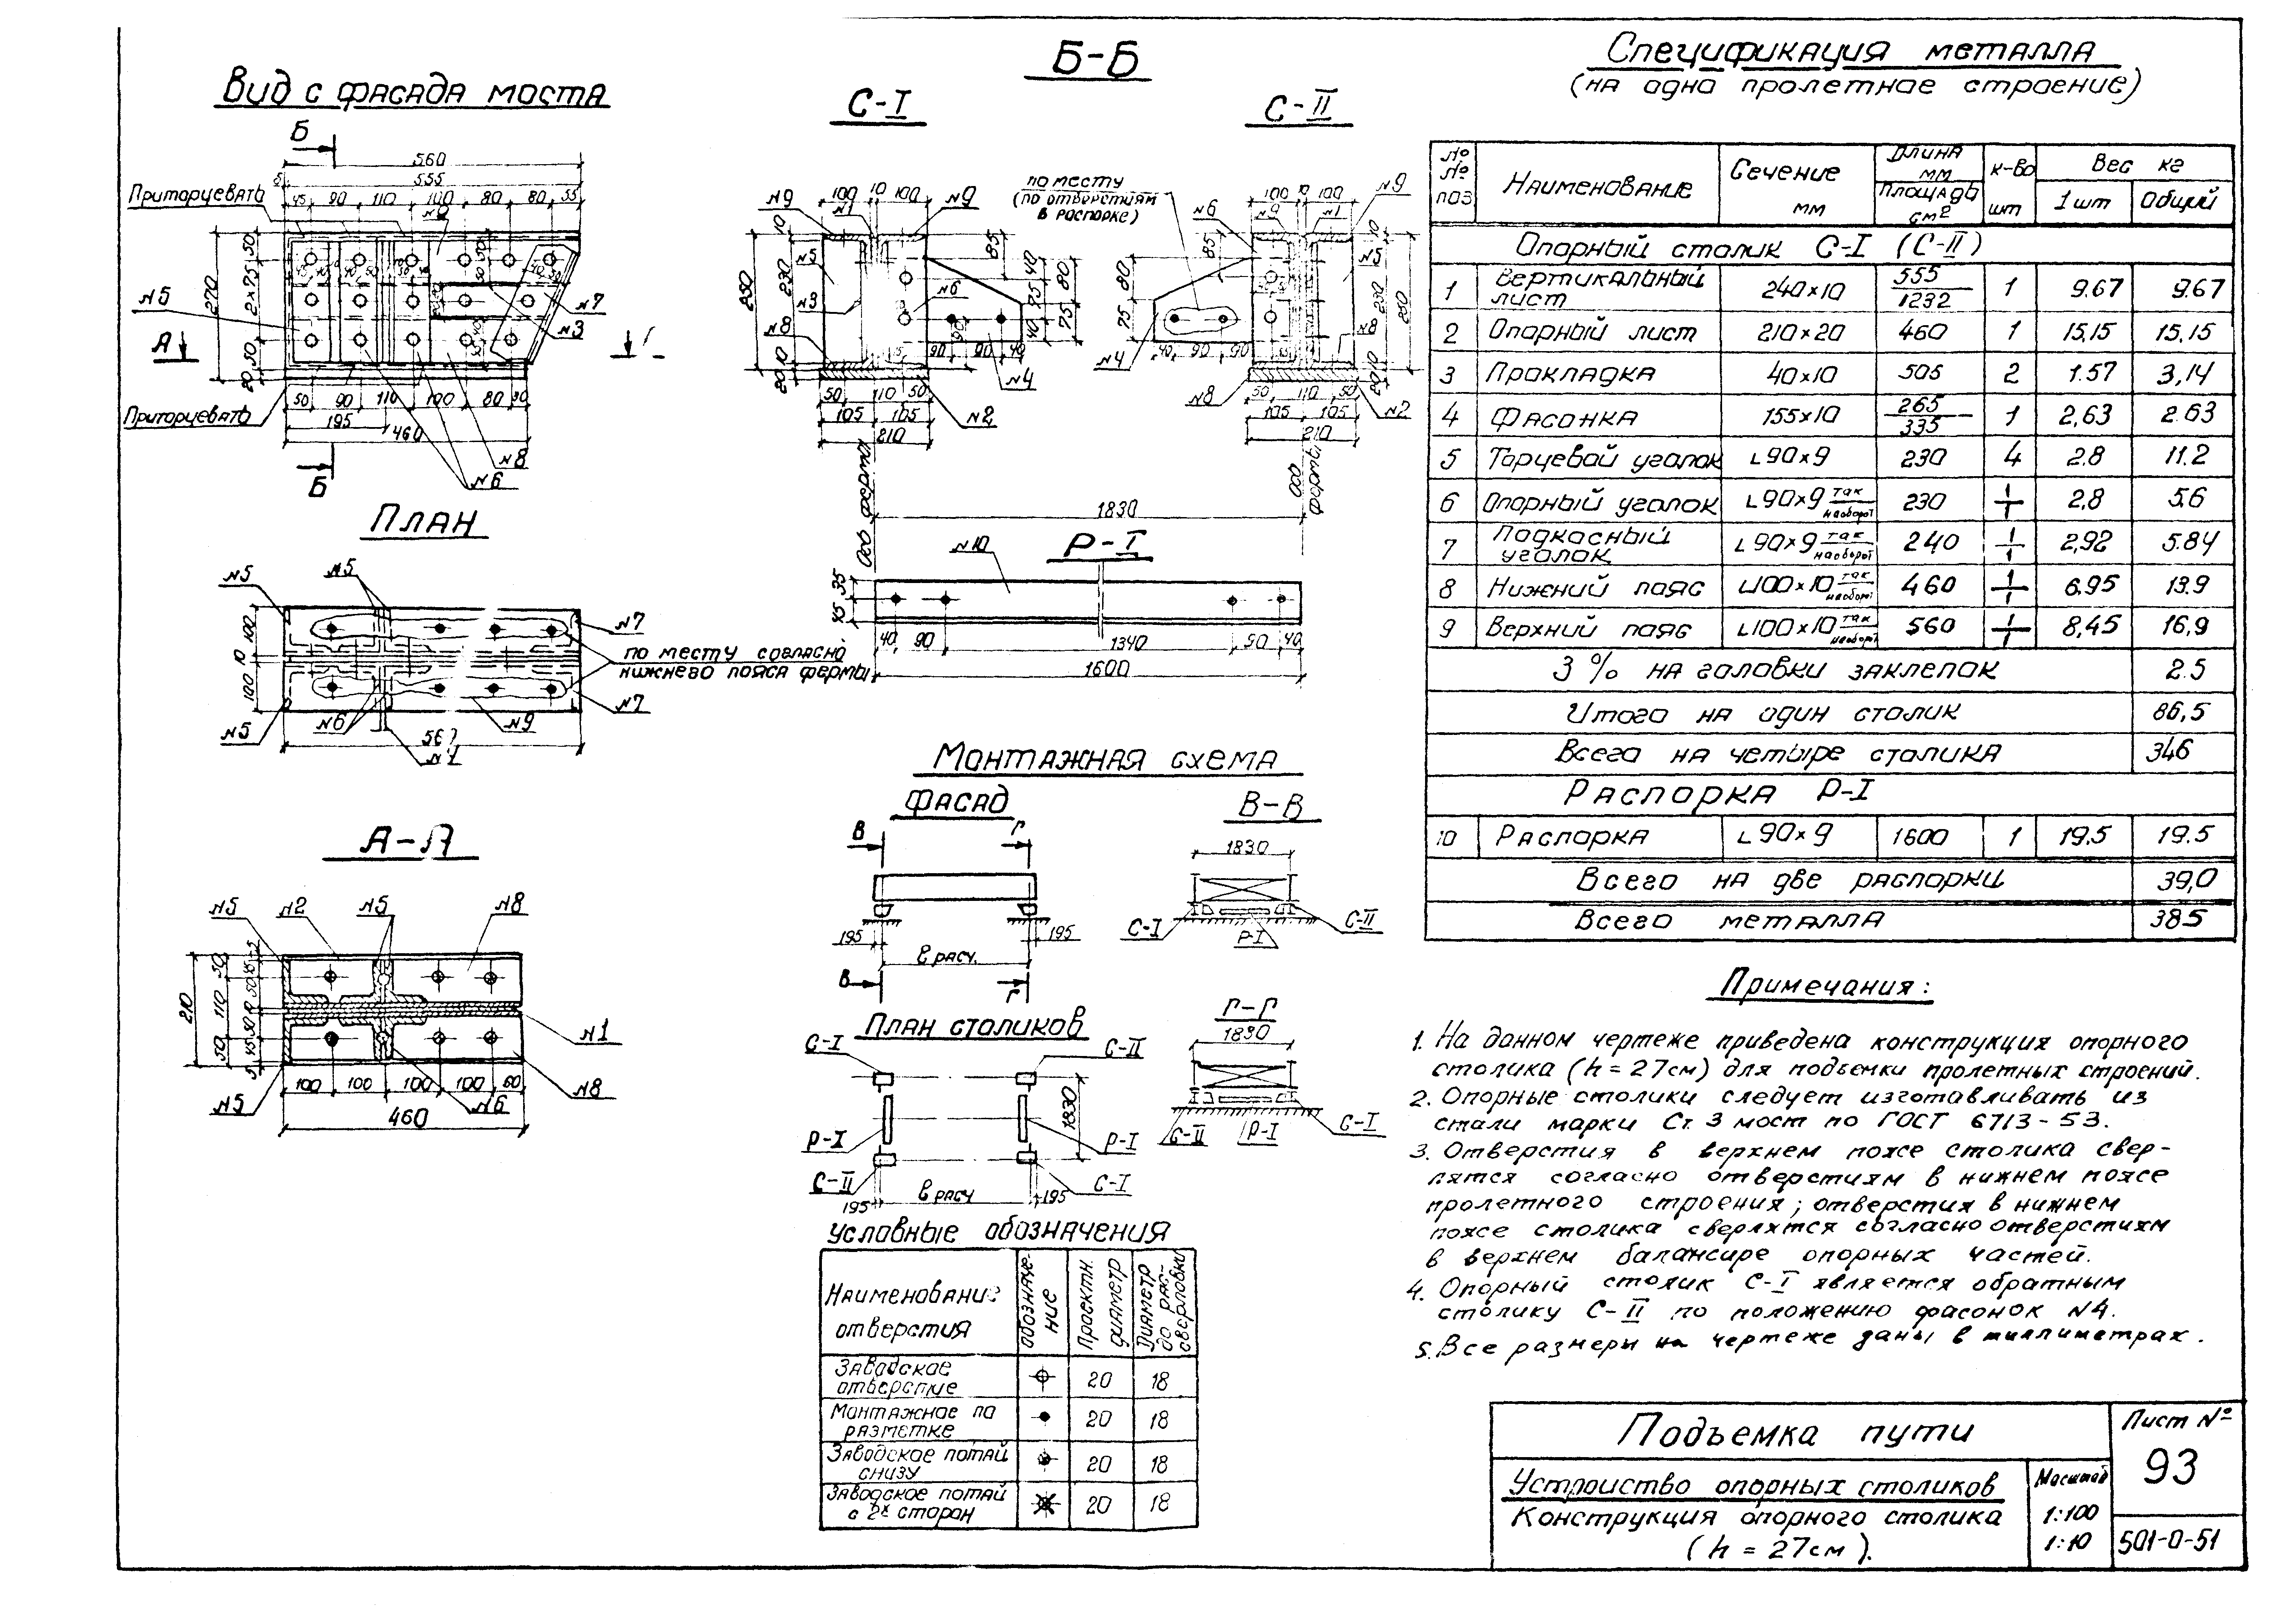 Вид с фасада моста
Б
560
555
5
Приторцевать
45 90 110 100 80 80 55
270
50
2×75
50
20
N5
N7
N3
А
Приторцевать
50 90 110 100 80 30
195
460
N8
N6
Б
План
N5 N5
N7
100
10
100
по месту согласно
нижнего пояса фермы
N5 N6 N9 N7
А-А
N5 N2 N5 N8
210
50
110
50
N1
100 100 100 100 60
N5 N6 N8
460
Б-Б
С-I
С-II
100 10 100
N9 N1 N9
по месту
(по отверстиям
в распорке)
100 10 100
N6 N9 N1 N9
85
N5
N3
N6
N8
N4
N2
230
10
20
40
75
40
80
75
90 90 40
50 110 50
105 105
210
85
80
75
N4
40 90 90
N5
N8
N8
N2
230
50 110 50
105 105
210
Ось фермы
Ось фермы
1830
N10
Р-I
35
45
40 90 1340 50 40
1600
Монтажная схема
Фасад
В-В
В Г
1830
195 195
ℓ расч.
В Г
С-I Р-I С-II
План столиков
Г-Г
1830
С-I С-II
Р-I Р-I
1830
С-II С-I
195 ℓ расч 195
С-II Р-I С-I
Условные обозначения
Наименование отверстия
обозначе-
ние
Проектн.
диаметр
Диаметр
до рас-
сверловки
Заводское
отверстие 20 18
Монтажное по
разметке 20 18
Заводское потай
снизу 20 18
Заводское потай
с 2х сторон 20 18
Спецификация металла
(на одно пролетное строение)
№№ поз
Наименование
Сечение мм
Длина мм
Площадь см²
К-во шт
Вес кг
1 шт Общий
Опорный столик С-I (С-II)
1 Вертикальный лист 240×10 555/1232 1 9.67 9.67
2 Опорный лист 210×20 460 1 15,15 15,15
3 Прокладка 40×10 505 2 1.57 3,14
4 Фасонка 155×10 265/335 1 2,63 2.63
5 Торцевой уголок ∟90×9 230 4 2.8 11.2
6 Опорный уголок ∟90×9 так/наоборот 230 1/1 2,8 5.6
7 Подкосный уголок ∟90×9 так/наоборот 240 1/1 2,92 5.84
8 Нижний пояс ∟100×10 так/наоборот 460 1/1 6.95 13.9
9 Верхний пояс ∟100×10 так/наоборот 560 1/1 8,45 16,9
3% на головки заклепок 2.5
Итого на один столик 86,5
Всего на четыре столика 346
Распорка Р-I
10 Распорка ∟90×9 1600 1 19.5 19.5
Всего на две распорки 39,0
Всего металла 385
Примечания:
1. На данном чертеже приведена конструкция опорного
столика (h=27см) для подъемки пролетных строений.
2. Опорные столики следует изготавливать из
стали марки Ст. 3 мост по ГОСТ 6713-53.
3. Отверстия в верхнем поясе столика свер-
лятся согласно отверстиям в нижнем поясе
пролетного строения; отверстия в нижнем
поясе столика сверлятся согласно отверстиям
в верхнем балансире опорных частей.
4. Опорный столик С-I является обратным
столику С-II по положению фасонок N4.
5. Все размеры на чертеже даны в миллиметрах.
Подъемка пути
Лист №
93
Устройство опорных столиков
Конструкция опорного столика
(h=27см).
Масштаб
1:100
1:10
501-0-51